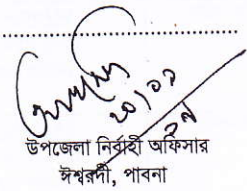 ২০/০১
উপজেলা নির্বাহী অফিসার
ঈশ্বরদী, পাবনা